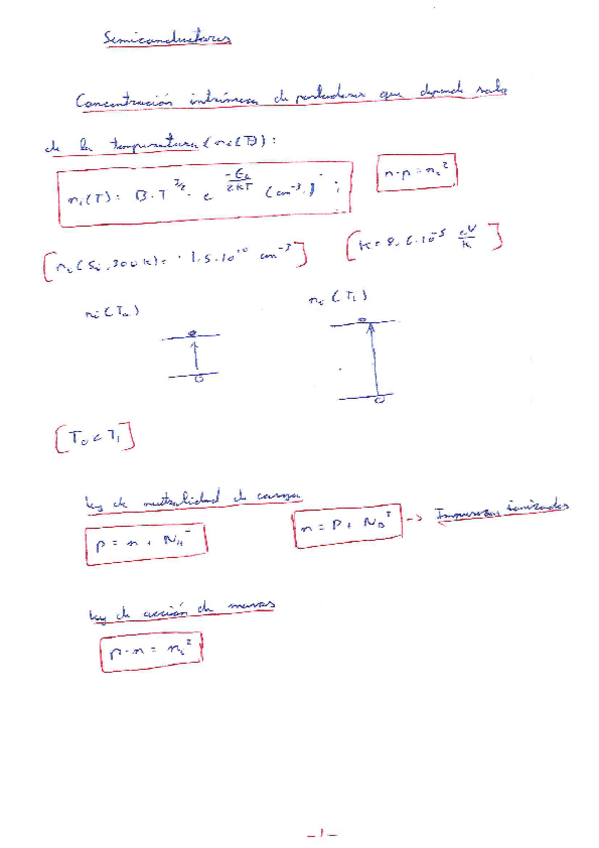 Semiconductores
Concentración intrínseca de portadores que depende solo
de la temperatura (ni(T)):
ni(T) = B·T^3/2 · e^(-EG/2kT) (cm^-3) ;
n·p = ni^2
[ni(Si, 300K) = 1.5·10^10 cm^-3]
[K = 8.6·10^-5 eV/K]
ni(T0)
ni(T1)
[T0 < T1]
Ley de neutralidad de carga
p = n + NA^-
n = p + ND^+ -> Impurezas ionizadas
Ley de acción de masas
p·n = ni^2
-1-